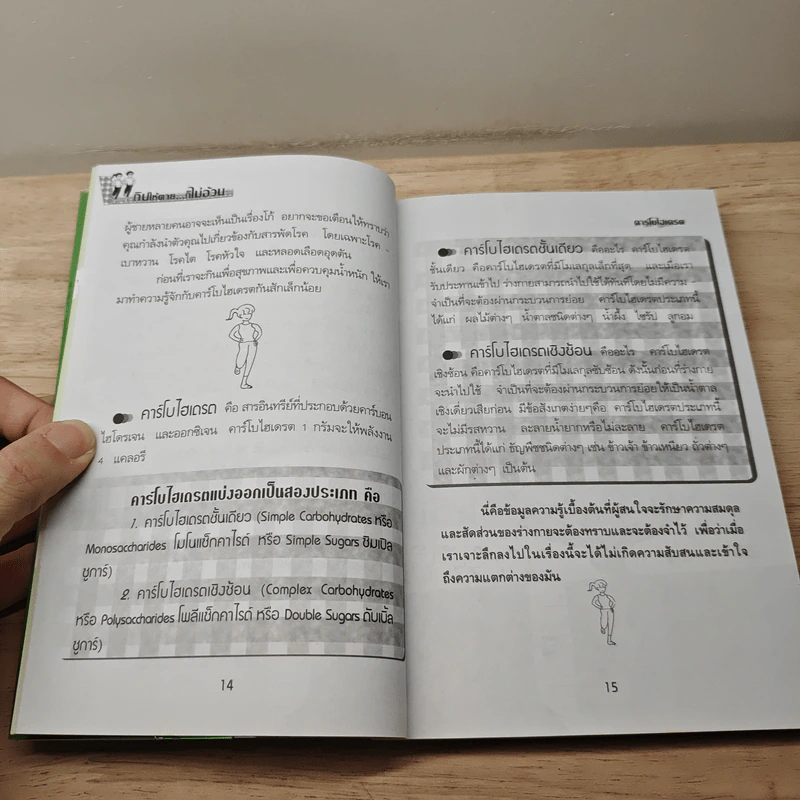 กินให้ตาย...ก็ไม่อ้วน
ผู้ชายหลายคนอาจจะเห็นเป็นเรื่องโก้ อยากจะขอเตือนให้ทราบว่า
คุณกำลังนำตัวคุณไปเกี่ยวข้องกับสารพัดโรค โดยเฉพาะโรค
เบาหวาน โรคไต โรคหัวใจ และหลอดเลือดอุดตัน
ก่อนที่เราจะกินเพื่อสุขภาพและเพื่อควบคุมน้ำหนัก ให้เรา
มาทำความรู้จักกับคาร์โบไฮเดรตกันสักเล็กน้อย
คาร์โบไฮเดรต คือ สารอินทรีย์ที่ประกอบด้วยคาร์บอน
ไฮโดรเจน และออกซิเจน คาร์โบไฮเดรต 1 กรัมจะให้พลังงาน
4 แคลอรี
คาร์โบไฮเดรตแบ่งออกเป็นสองประเภท คือ
1. คาร์โบไฮเดรตชั้นเดียว (Simple Carbohydrates หรือ
Monosaccharides โมโนแซ็กคาไรด์ หรือ Simple Sugars ซิมเปิ้ล
ชูการ์)
2. คาร์โบไฮเดรตเชิงซ้อน (Complex Carbohydrates
หรือ Polysaccharides โพลีแซ็กคาไรด์ หรือ Double Sugars ดับเบิ้ล
ชูการ์)
14
คาร์โบไฮเดรต
คาร์โบไฮเดรตชั้นเดียว คืออะไร คาร์โบไฮเดรต
ชั้นเดียว คือคาร์โบไฮเดรตที่มีโมเลกุลเล็กที่สุด และเมื่อเรา
รับประทานเข้าไป ร่างกายสามารถนำไปใช้ได้ทันทีโดยไม่มีความ
จำเป็นที่จะต้องผ่านกระบวนการย่อย คาร์โบไฮเดรตประเภทนี้
ได้แก่ ผลไม้ต่างๆ น้ำตาลชนิดต่างๆ น้ำผึ้ง ไซรัป ลูกอม
คาร์โบไฮเดรตเชิงซ้อน คืออะไร คาร์โบไฮเดรต
เชิงซ้อน คือคาร์โบไฮเดรตที่มีโมเลกุลซับซ้อน ดังนั้นก่อนที่ร่างกาย
จะนำไปใช้ จำเป็นที่จะต้องผ่านกระบวนการย่อยให้เป็นน้ำตาล
เชิงเดี่ยวเสียก่อน มีข้อสังเกตง่ายๆคือ คาร์โบไฮเดรตประเภทนี้
จะไม่มีรสหวาน ละลายน้ำยากหรือไม่ละลาย คาร์โบไฮเดรต
ประเภทนี้ได้แก่ ธัญพืชชนิดต่างๆ เช่น ข้าวเจ้า ข้าวเหนียว ถั่วต่างๆ
และผักต่างๆ เป็นต้น
นี่คือข้อมูลความรู้เบื้องต้นที่ผู้สนใจจะรักษาความสมดุล
และสัดส่วนของร่างกายจะต้องทราบและจะต้องจำไว้ เพื่อว่าเมื่อ
เราเจาะลึกลงไปในเรื่องนี้จะได้ไม่เกิดความสับสนและเข้าใจ
ถึงความแตกต่างของมัน
15